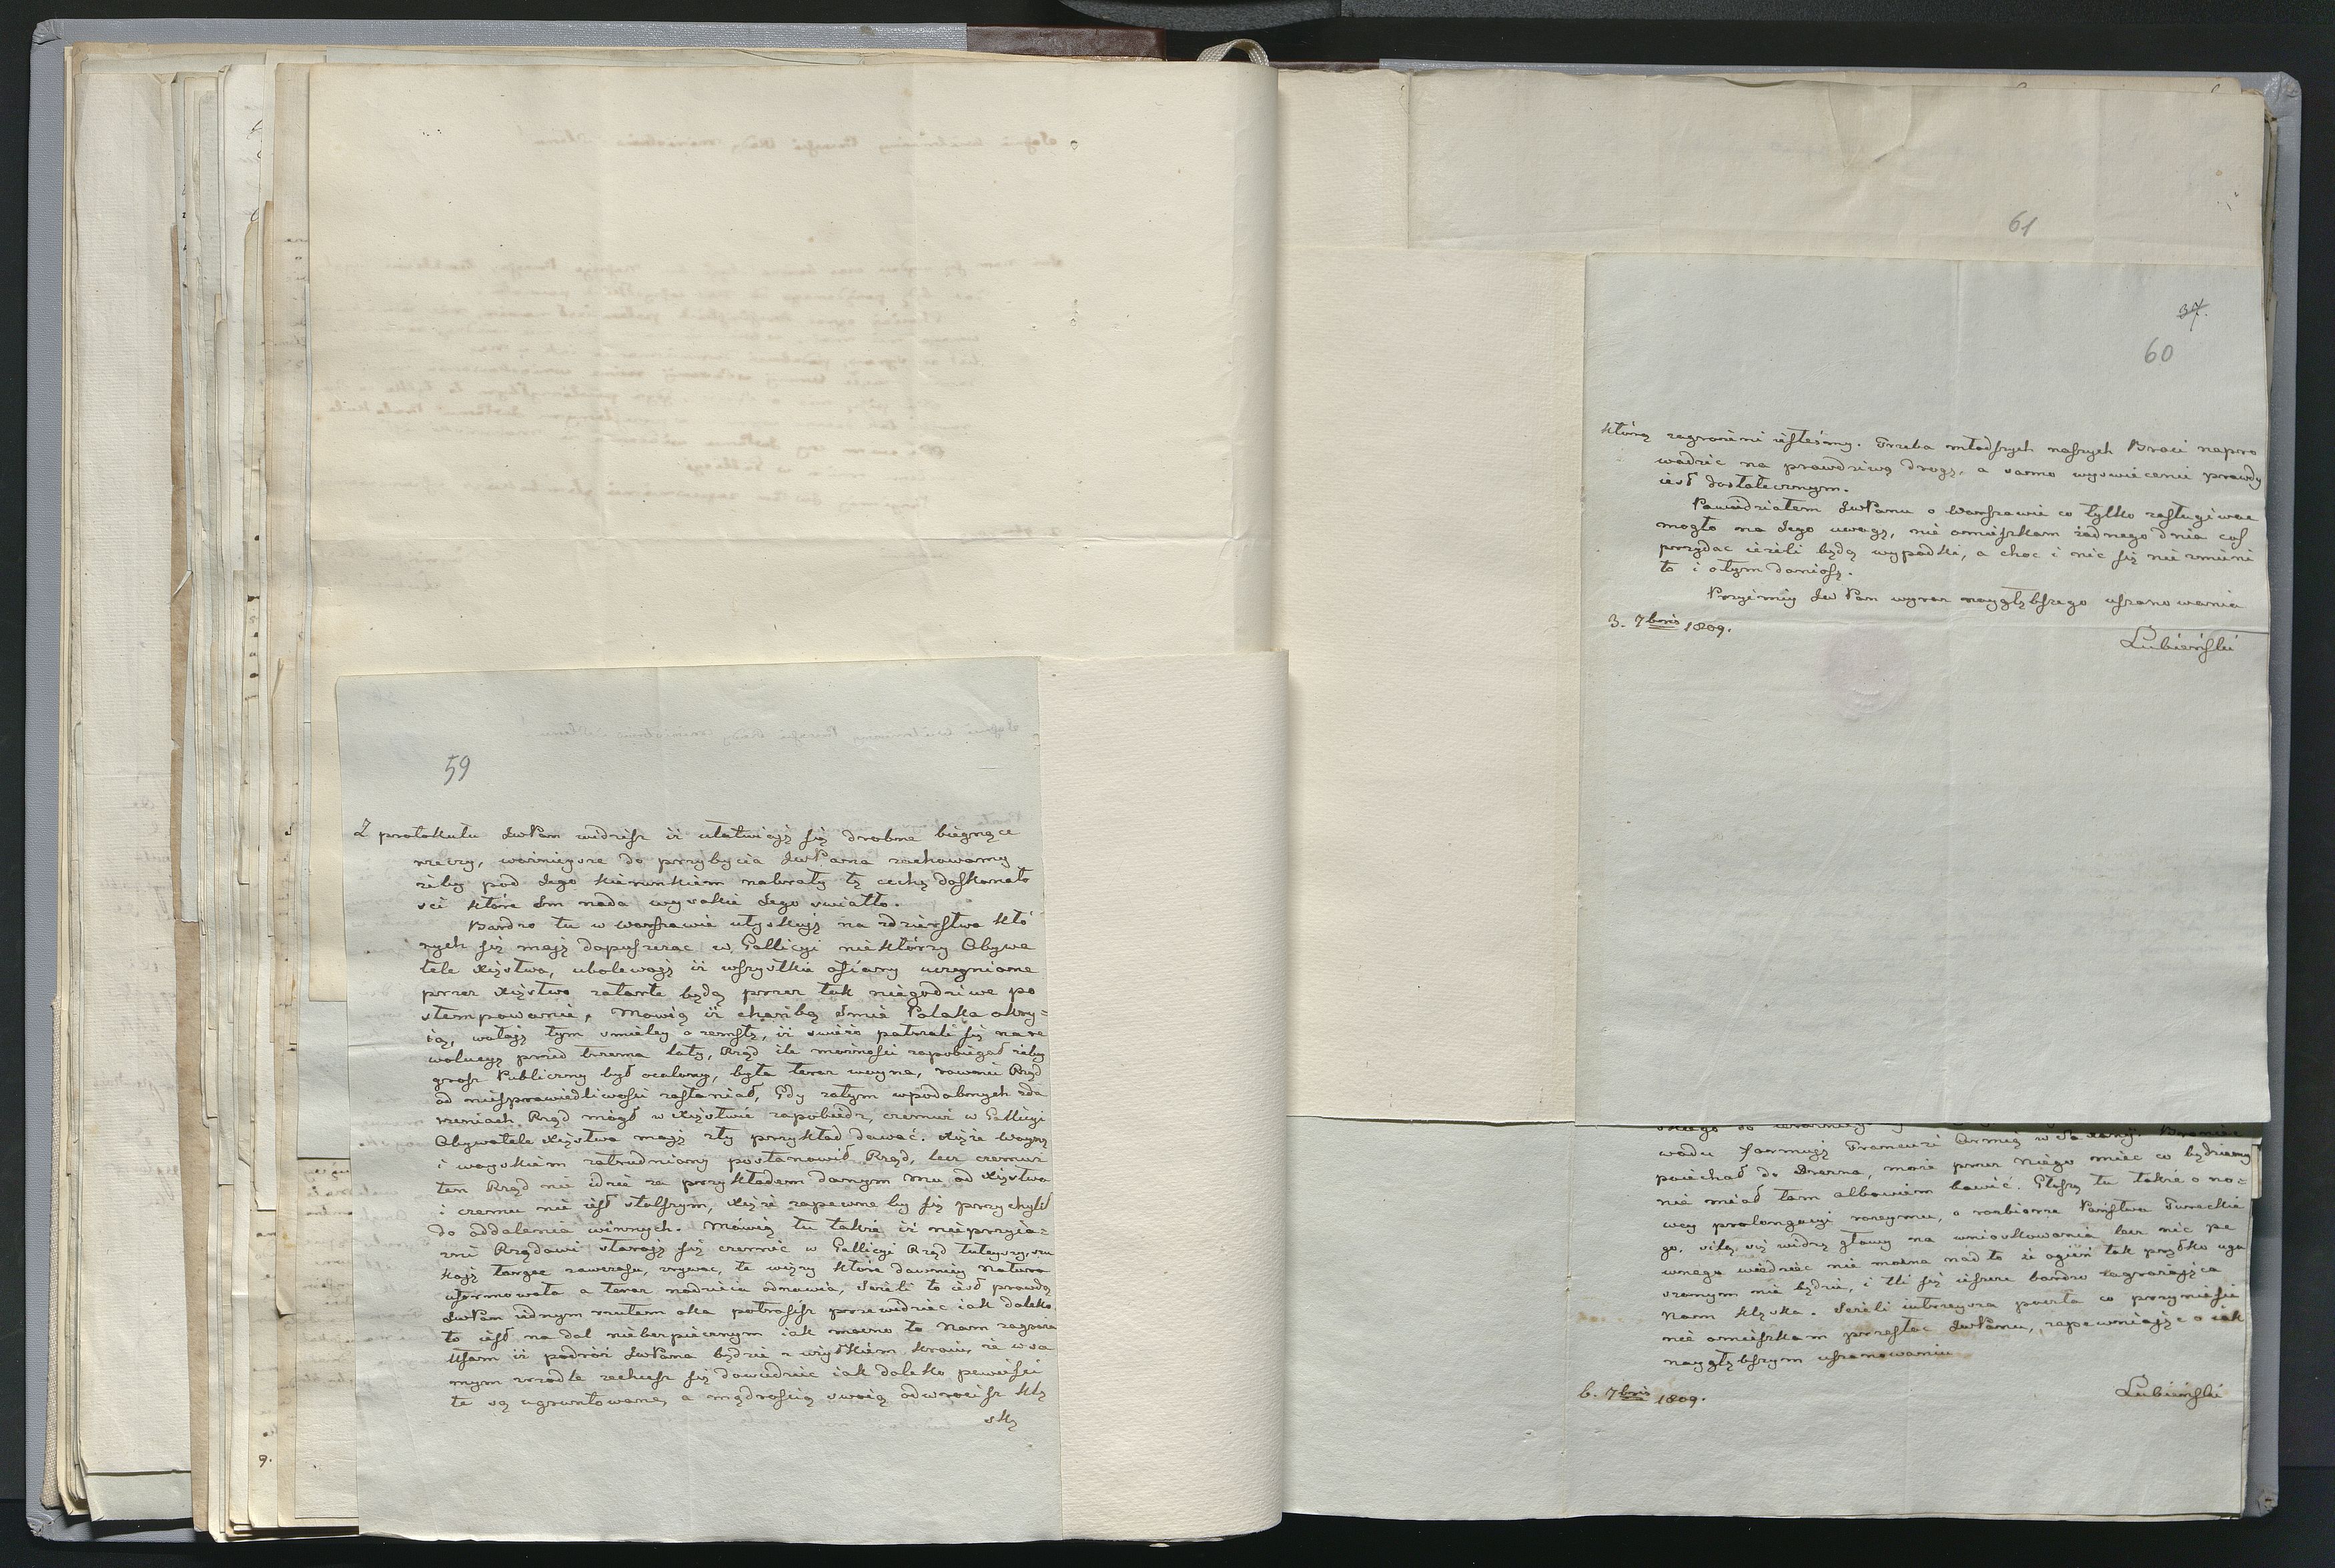 59
Z protokułu JwPam widzisz iż ułatwiaią się drobne biegnące
rzeczy, wazniejsze do przybycia JwPana zachowamy
zeby pod Jego kierunkiem nabrały tę cechę doskonało
sci które Im nada wysokie Jego swiatło.
Bardzo tu w Warszawie utyskuią na zdzierstwa któ
rych się maią dopuszczac w Gallicyi niektórzy Obywa
tele Xięstwa, ubolewaią iż wszystkie ofiary uczynione
przez Xięstwo zatarte będą przez tak niegodziwe po
stempowanie, Mowią iż chańbą Imie Polaka okry=
ią, wołaią tym smieley o zemstę, iż swiezo patrzali się na re
wolucyę przed trzema laty, Rząd ile moznosci zapobiegał zeby
grosz Publiczny był ocalony, była teraz woyna, rownie Rząd
od niesprawiedliwosci zasłaniał, Gdy zatym w podobnych zda
rzeniach Rząd mógł w Xięstwie zapobiedz, czemuż w Gallicyi
Obywatele Xięstwa maią zły przykład dawać. Xiąże woyną
i woyskiem zatrudniony postanowił Rząd, lecz czemuż
ten Rząd nie idzie za przykładem danym mu od Xięstwa
i czemu nie iest stalszym, Xiąże zapewne by się przychylił
do oddalenia winnych. Mówią tu takze iż nieprzyia=
zni Rządowi staraią się czernić w Gallicyi Rząd tuteyszy, szu
kaią targac zawczasu, zrywac, te węzły które dawniey Natura
uformowała a teraz nadzieia odnawia, Jezeli to iest prawdą
JwPan iednym rzutem oka potrafisz przewidziec iak daleko
to iest na dal niebezpiecznym iak mocno to Nam zagraża
Ufam iż podróż JwPana będzie z wszystkiem kraiu, że w sa
mym zrzodle zechcesz się dowiedziec iak daleko pewności
te są ugruntowane, a mądroscią swoią odwrocisz klę
skę
61
37.
60
którą zagrożeni iesteśmy. Trzeba młodszych naszych Braci napro
wadzic na prawdziwą drogę, a samo wyswiecenie prawdy
iest dostatecznym.
Powiedziałem JwPanu o Warszawie co tylko zasługiwac
mogło na Jego uwagę, nie omieszkam żadnego dnia cos
przydac ieżeli będą wypadki, a choc i nic się nie zmieni
to i o tym doniosę.
Przyimiy JwPan wyraz naygłębszego uszanowania
3. 7bris 1809.
Lubieński
wadu formuią Francuzi Armię w Saxonij. Broniec
poiechał do Drezna, może przez Niego miec co będziemy
nie miał tam albowiem bawić. Głoszą tu także o no=
wey prolongacyi rozeymu, o rozbiorze Państwa Tureckie
go. silą się widzę głowy na wnioskowania lecz nic pe
wnego wiedziec nie można nad to iż ogień tak prędko uga
szonym nie będzie, i tli się ieszcze bardzo zagrażaiąca
Nam klęska. Jeżeli iutrzeysza poczta co przyniesie
nie omieszkam przesłac JwPanu, zapewniaiąc o iak
naygłębszym uszanowaniu
6. 7bris 1809.
Lubieński
9.